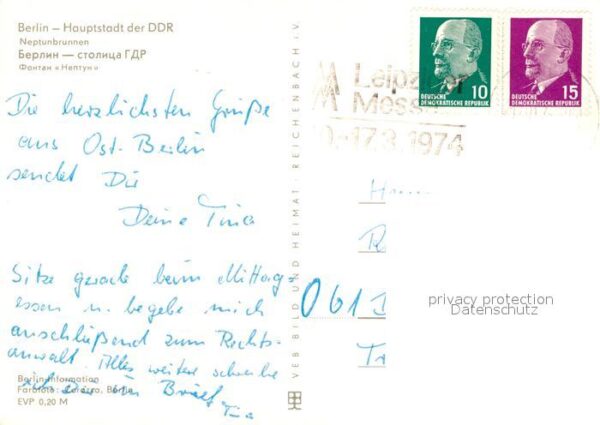 Berlin – Hauptstadt der DDR
Neptunbrunnen
Берлин — столица ГДР
Фонтан «Нептун»
Die herzlichsten Grüße
aus Ost-Berlin
sendet Dir
Deine Tina
Sitze gerade beim Mittag-
essen u. begebe mich
anschließend zum Rechts-
anwalt. Alles weitere schreibe
ich Dir im Brief
Tina
Berlin-Information
Farbfoto: Berlin
EVP 0,20 M
VEB BILD UND HEIMAT REICHENBACH i.V.
Leipziger
Messe
10.-17.3.1974
10
DEUTSCHE
DEMOKRATISCHE REPUBLIK
15
DEUTSCHE
DEMOKRATISCHE REPUBLIK
061
privacy protection
Datenschutz